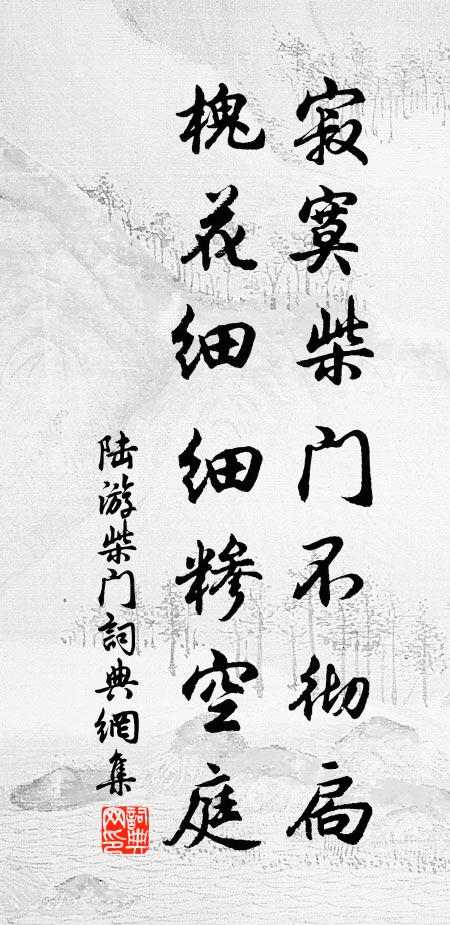 寂寞柴门不彻扃
槐花细细糁空庭
陆游柴门詞典網集
詞典网印